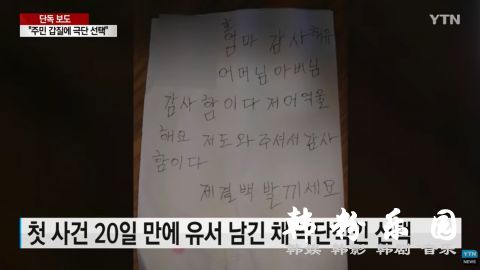 단독 보도
"주민 갑질에 극단 선택"
YTN
엄마 감사해유
어머님 아버님
감사 함이다 저 어억울
해요 저도와주셔서 감사
함이다
제결백 발끼세요
첫 사건 20일 만에 유서 남긴 채 극단적인 선택
韩粉乐园
韩娱 韩影 韩剧 音乐
YTN
NEWS